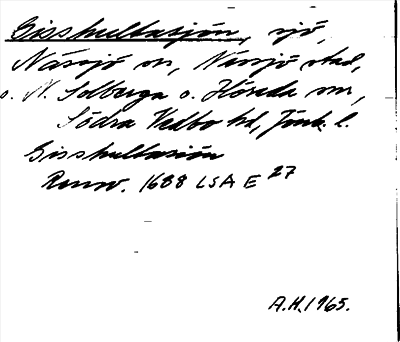 Gisshultasjön, sjö,
Nässjö sn, Nässjö stad,
o. N. Solberga o. Flisda sn,
Södra Vedbo hd, Jönk. l.
Gisshultasiön
Ranns. 1688 LSA E 27
A.H. 1965.